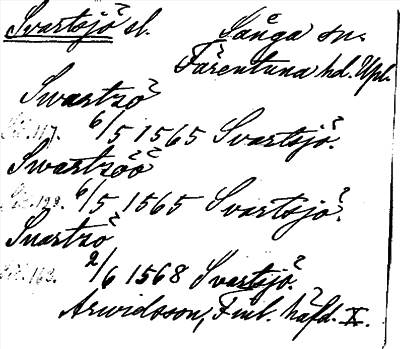 Svartsjö sl. Sånga sn.
Färentuna hd. Upl.
Swartzö
117. 6/5 1565 Svartsjö.
Swartzöö
128. 6/5 1565 Svartsjö.
Suartzö
163. 2/6 1568 Svartsjö.
Arwidsson, Finl. häfd. X.